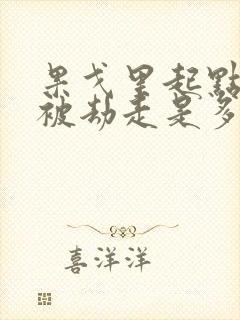 果戈里起點
被劫走是多
喜洋洋